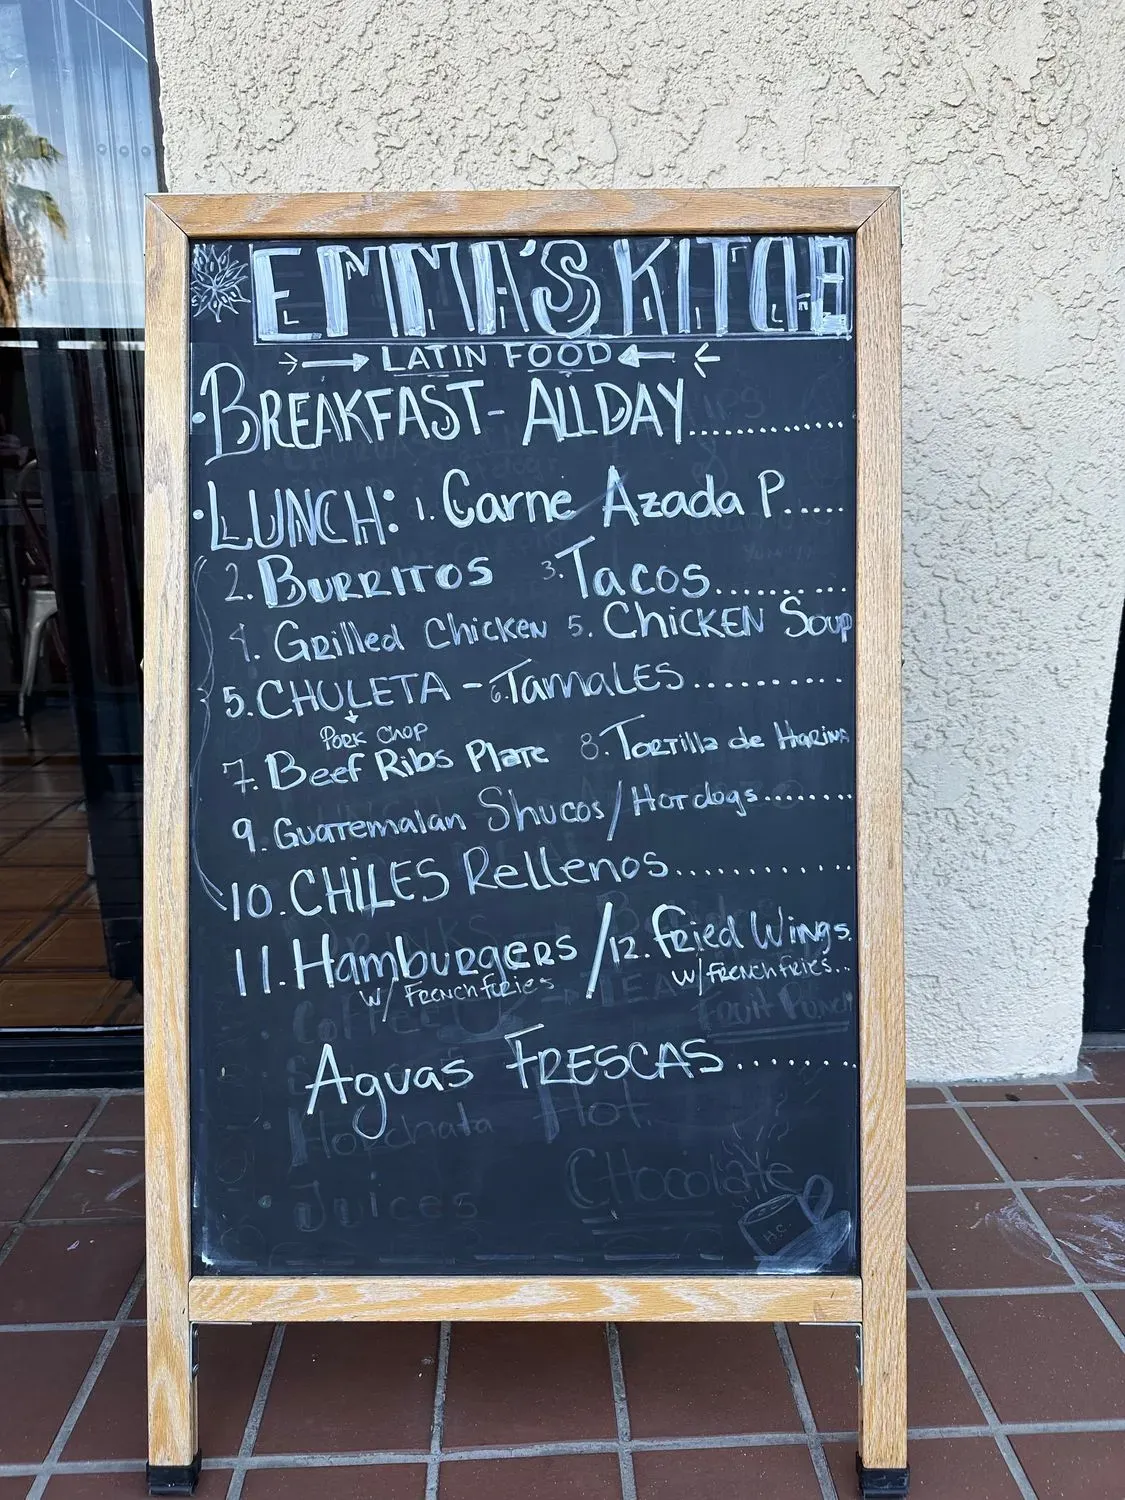 EMMA'S KITCHE
LATIN FOOD
• BREAKFAST - ALLDAY..............
• LUNCH: 1. Carne Azada P.....
2. BURRITOS 3. Tacos.........
4. Grilled Chicken 5. CHICKEN Soup
5. CHULETA - 6. TamaLES..........
Pork chop
7. Beef Ribs Plate 8. Tortilla de Harina
9. Guatemalan Shucos / Hot dogs........
10. CHILES Rellenos...........
11. Hamburgers / 12. fried Wings.
w/ French fries w/ french fries...
Fruit Punch
Aguas FRESCAS........
Horchata Hot
Juices CHocolate
H.C.